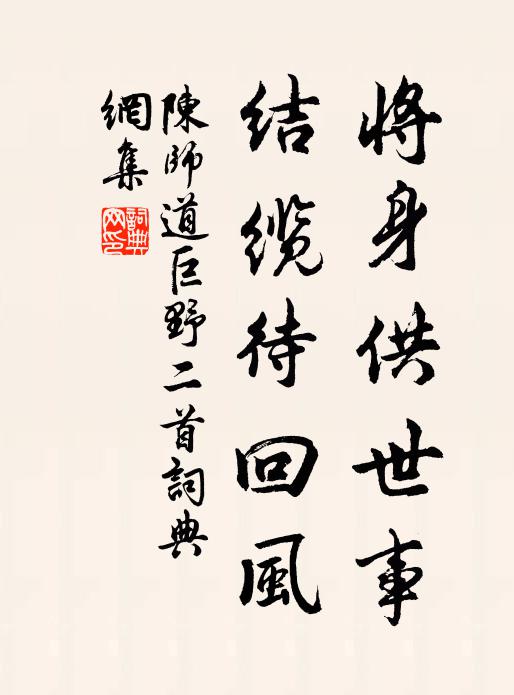 將身供世事
結纜待回風
陳師道巨野二首詞典
網集
詞典網印